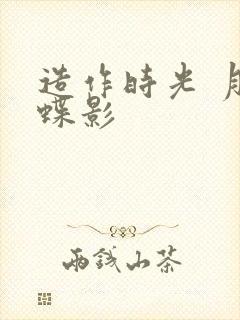 造作時光 月
蝶影
兩錢山茶